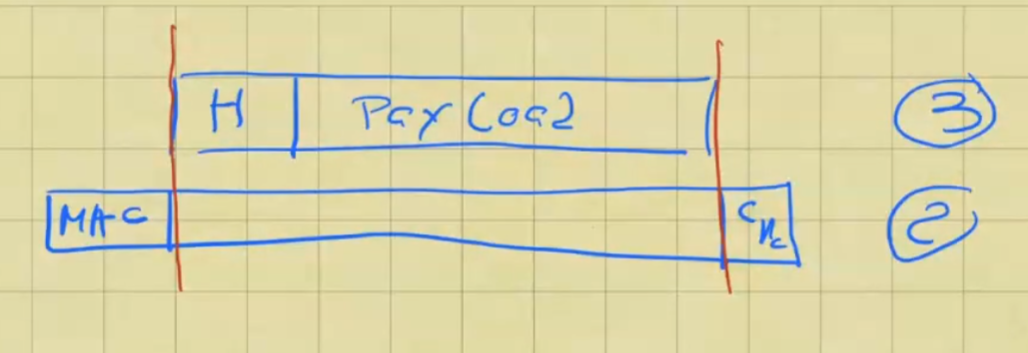 H Payload 3
MAC CRC 2